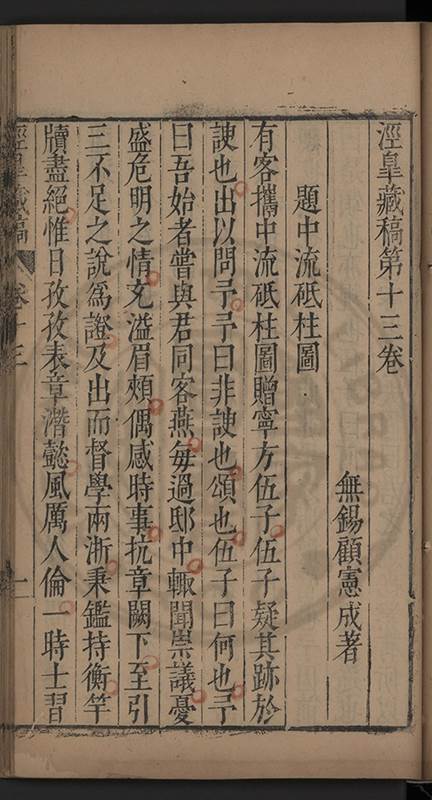 涇臯藏稿第十三卷
無錫顧憲成著
題中流砥柱圖
有客攜中流砥柱圖贈寧方伍子伍子疑其跡於
諛也出以問予予曰非諛也頌也伍子曰何也予
曰吾始者嘗與君同客燕每過邸中輙聞崇議憂
盛危明之情充溢眉頰偶感時事抗章闕下至引
三不足之說爲證及出而督學兩浙秉鑑持衡竿
牘盡絕惟日孜孜表章潛懿風厲人倫一時士習
涇臯藏稿 卷十三 一